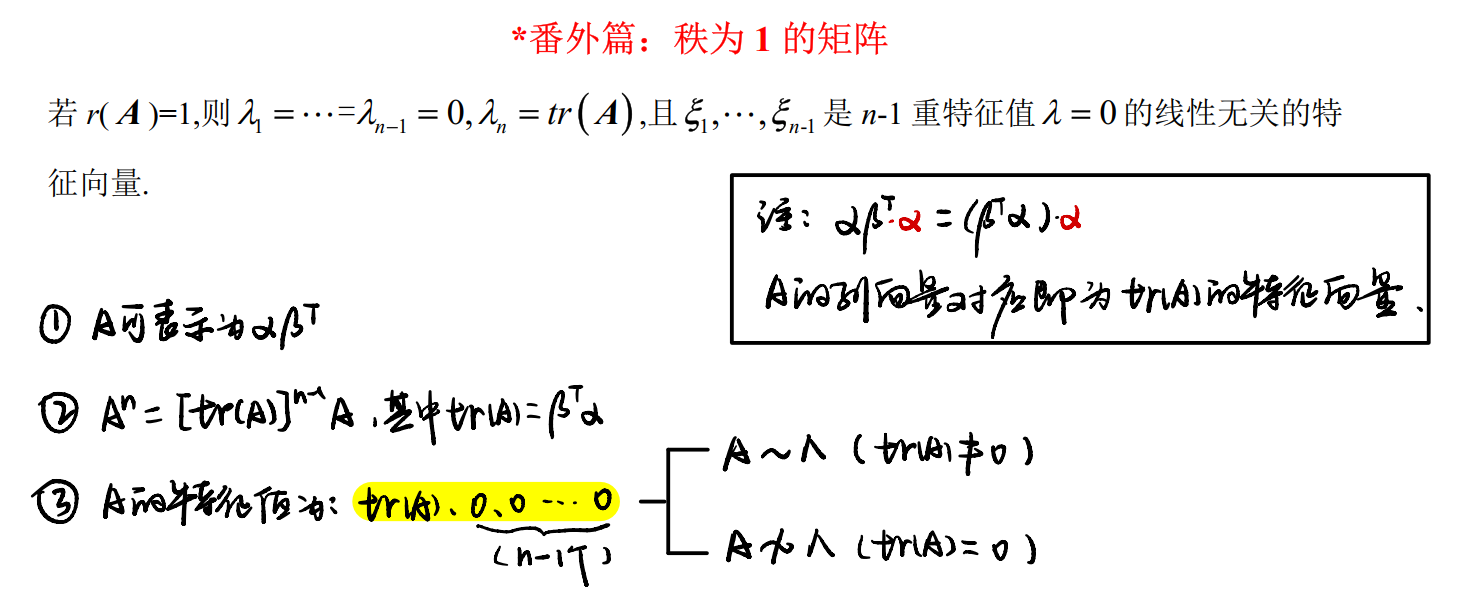 *番外篇：秩为 1 的矩阵
若 r( A )=1,则 λ₁ = ⋯=λₙ₋₁ = 0, λₙ = tr ( A ) ,且 ξ₁,⋯,ξₙ₋₁ 是 n-1 重特征值 λ = 0 的线性无关的特
征向量.
注：αβᵀ·α = (βᵀα)·α
A的列向量对应即为tr(A)的特征向量.
① A可表示为αβᵀ
② Aⁿ = [tr(A)]ⁿ⁻¹ A , 其中tr(A) = βᵀα
③ A的特征值为: tr(A)、0、0 ⋯ 0
(n-1个)
A ~ Λ ( tr(A) ≠ 0 )
A ≁ Λ ( tr(A) = 0 )